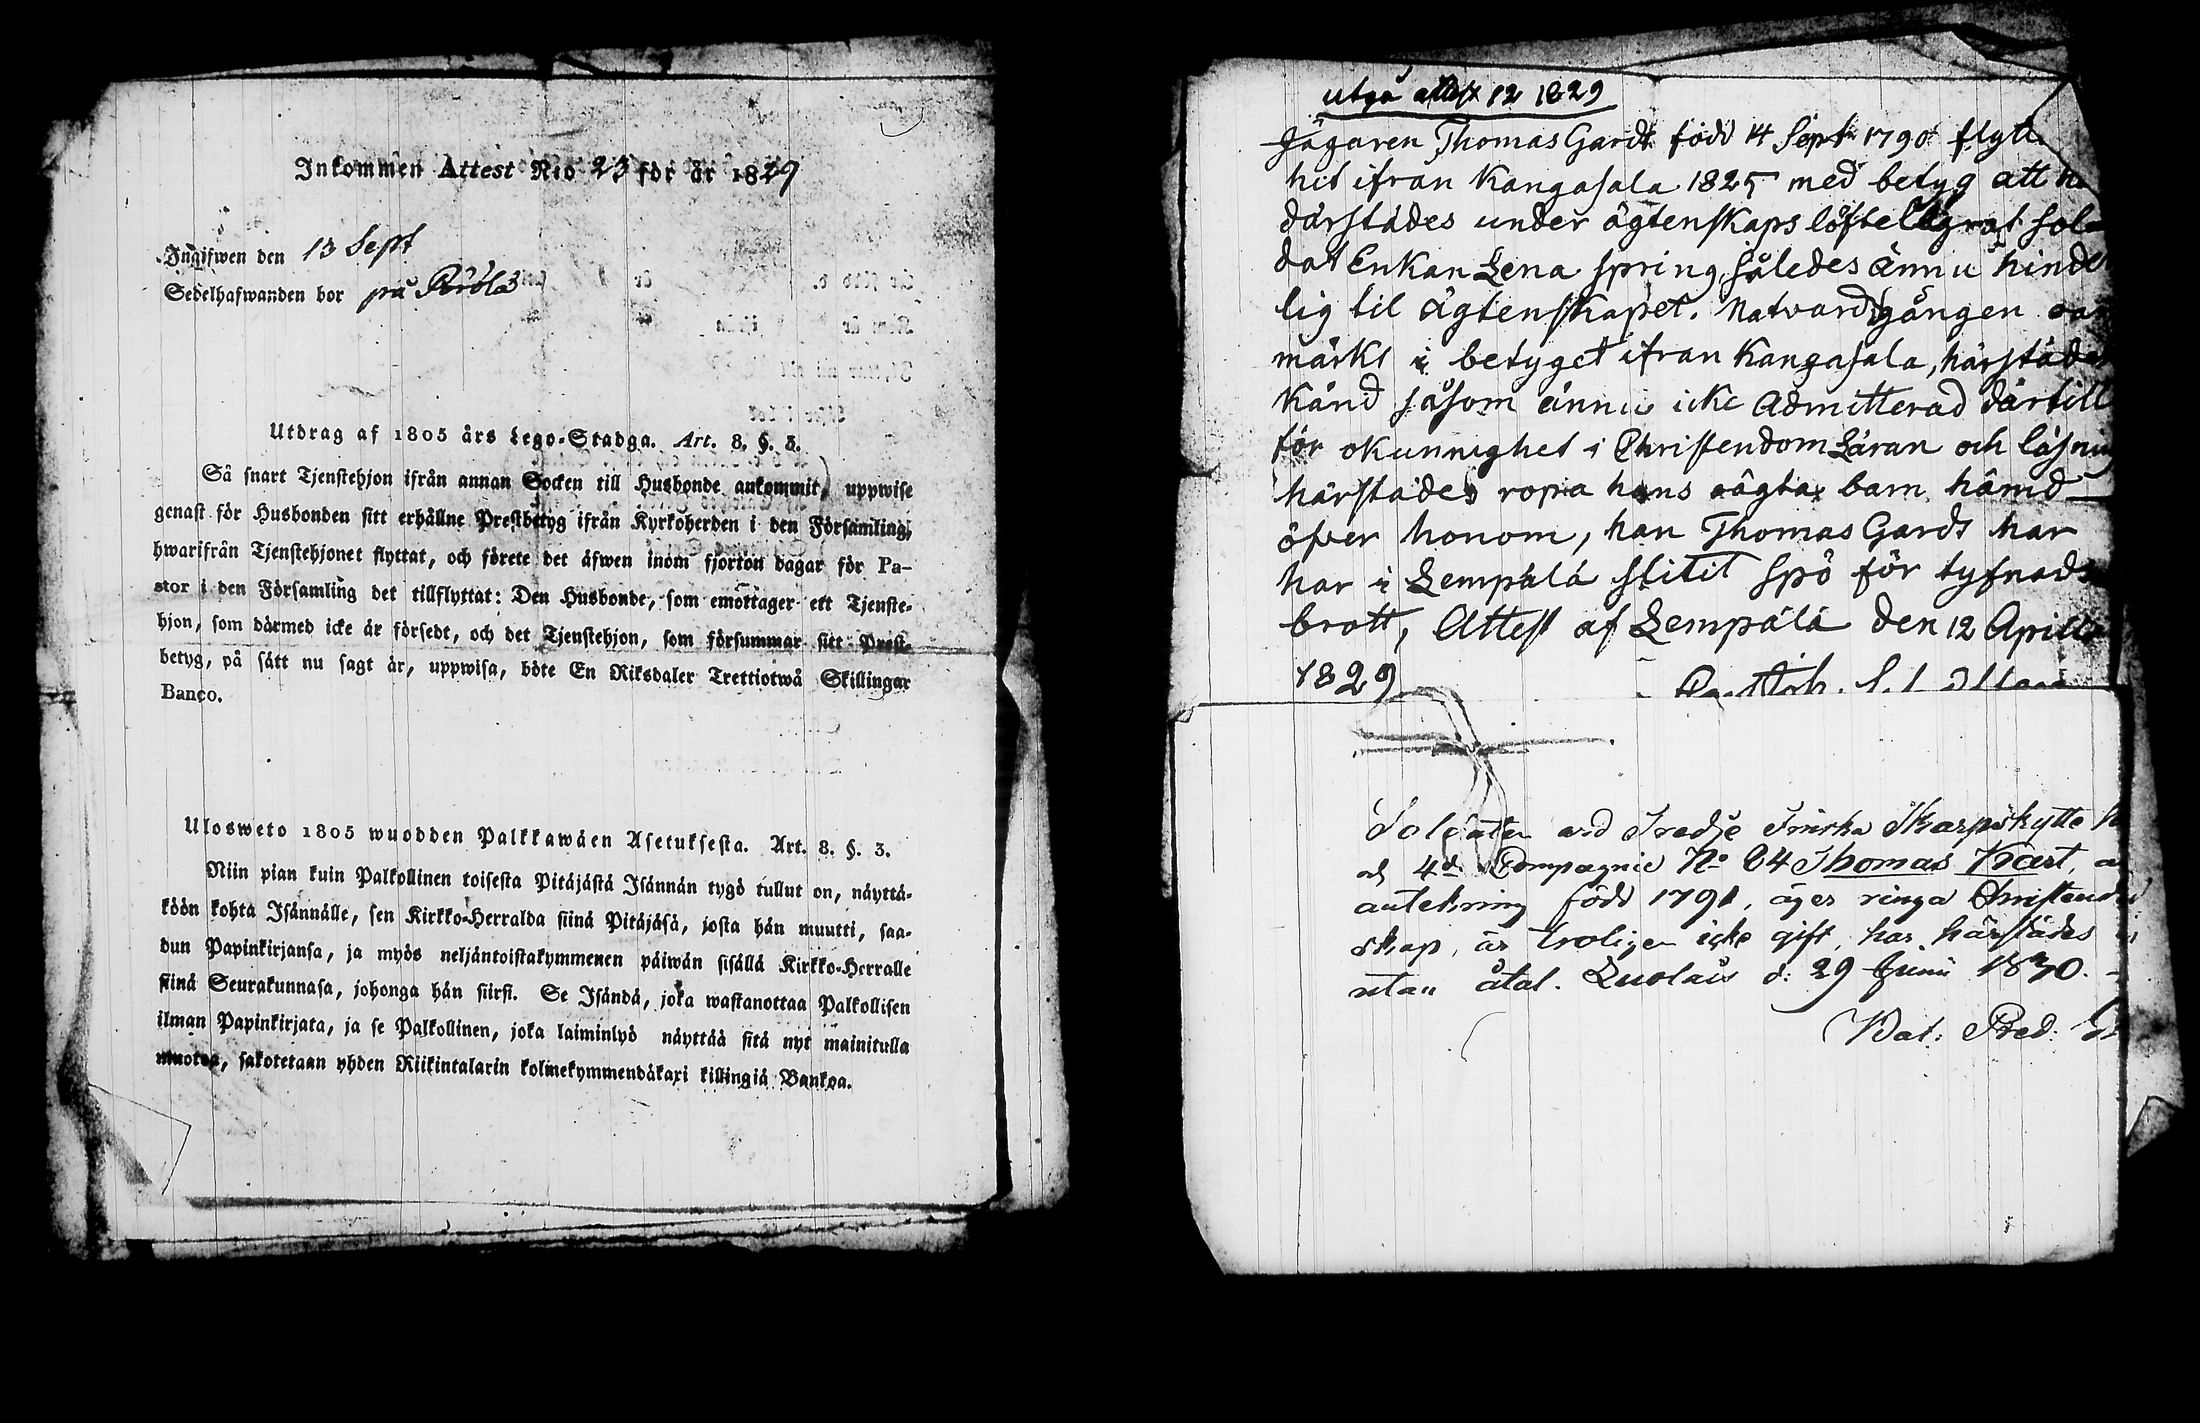 Inkommen Attest N:o 23 för år 1829
Ingifwen den 13 Sept
Sedelhafwanden bor på
Utdrag af 1805 års Lego-Stadga. Art. 8. §. 3.
Så snart Tjenstehjon ifrån annan Socken till Husbonde ankommit, uppwise
genast för Husbonden sitt erhållne Prestbetyg ifrån Kyrkoherden i den Församling,
hwarifrån Tjenstehjonet flyttat, och förete det äfwen inom fjorton dagar för Pa-
stor i den Församling det tillflyttat: Den Husbonde, som emottager ett Tjenste-
hjon, som därmed icke är försedt, och det Tjenstehjon, som försummar sitt Prest-
betyg, på sätt nu sagt är, uppwisa, böte En Riksdaler Trettiotwå Skillingar
Banco.
Ulosweto 1805 wuodden Palkkawäen Asetuksesta. Art. 8. §. 3.
Niin pian kuin Palkollinen toisesta Pitäjästä Isännän tygö tullut on, näyttä-
köön kohta Isännälle, sen Kirkko-Herralda siinä Pitäjäsä, josta hän muutti, saa-
dun Papinkirjansa, ja myös neljäntoistakymmenen päiwän sisällä Kirkko-Herralle
siinä Seurakunnasa, johonga hän siirsi. Se Isändä, joka wastanottaa Palkollisen
ilman Papinkirjata, ja se Palkollinen, joka laiminlyö näyttää sitä nyt mainitulla
muotoa, sakotetaan yhden Riikintalarin kolmekymmendäkaxi killingiä Bankoa.
utgå attest 12 1829
Jägaren Thomas Gardt född 14 Sept 1790 flytt
hit ifrån Kangasala 1825 med betyg att
därstädes under ägtenskaps löfte lägrat sol
dat Enkan Lena Spring, således ännu hinder
lig til ägtenskapet. Natvardsgången
märkt i betyget ifrån Kangasala, härstädes
känd såsom ännu icke Admitterad därtill
för okunnighet i Christendom Läran och läsning
härstädes ropa hans oägta barn hämd
öfver honom, han Thomas Gardt har
har i Lempälä slitit spö för tyfnads
brott, Attest af Lempälä den 12 Aprill
1829
Soldaten vid Tredje Finska Skarpskytte
och 4de Compagnie No 84 Thomas Kart,
född 1791, äger ringa Christendoms
skap, är troligen icke gift, har härstädes
utan åtal. Quolais d: 29 Junii 1830.
Bat: Pred: